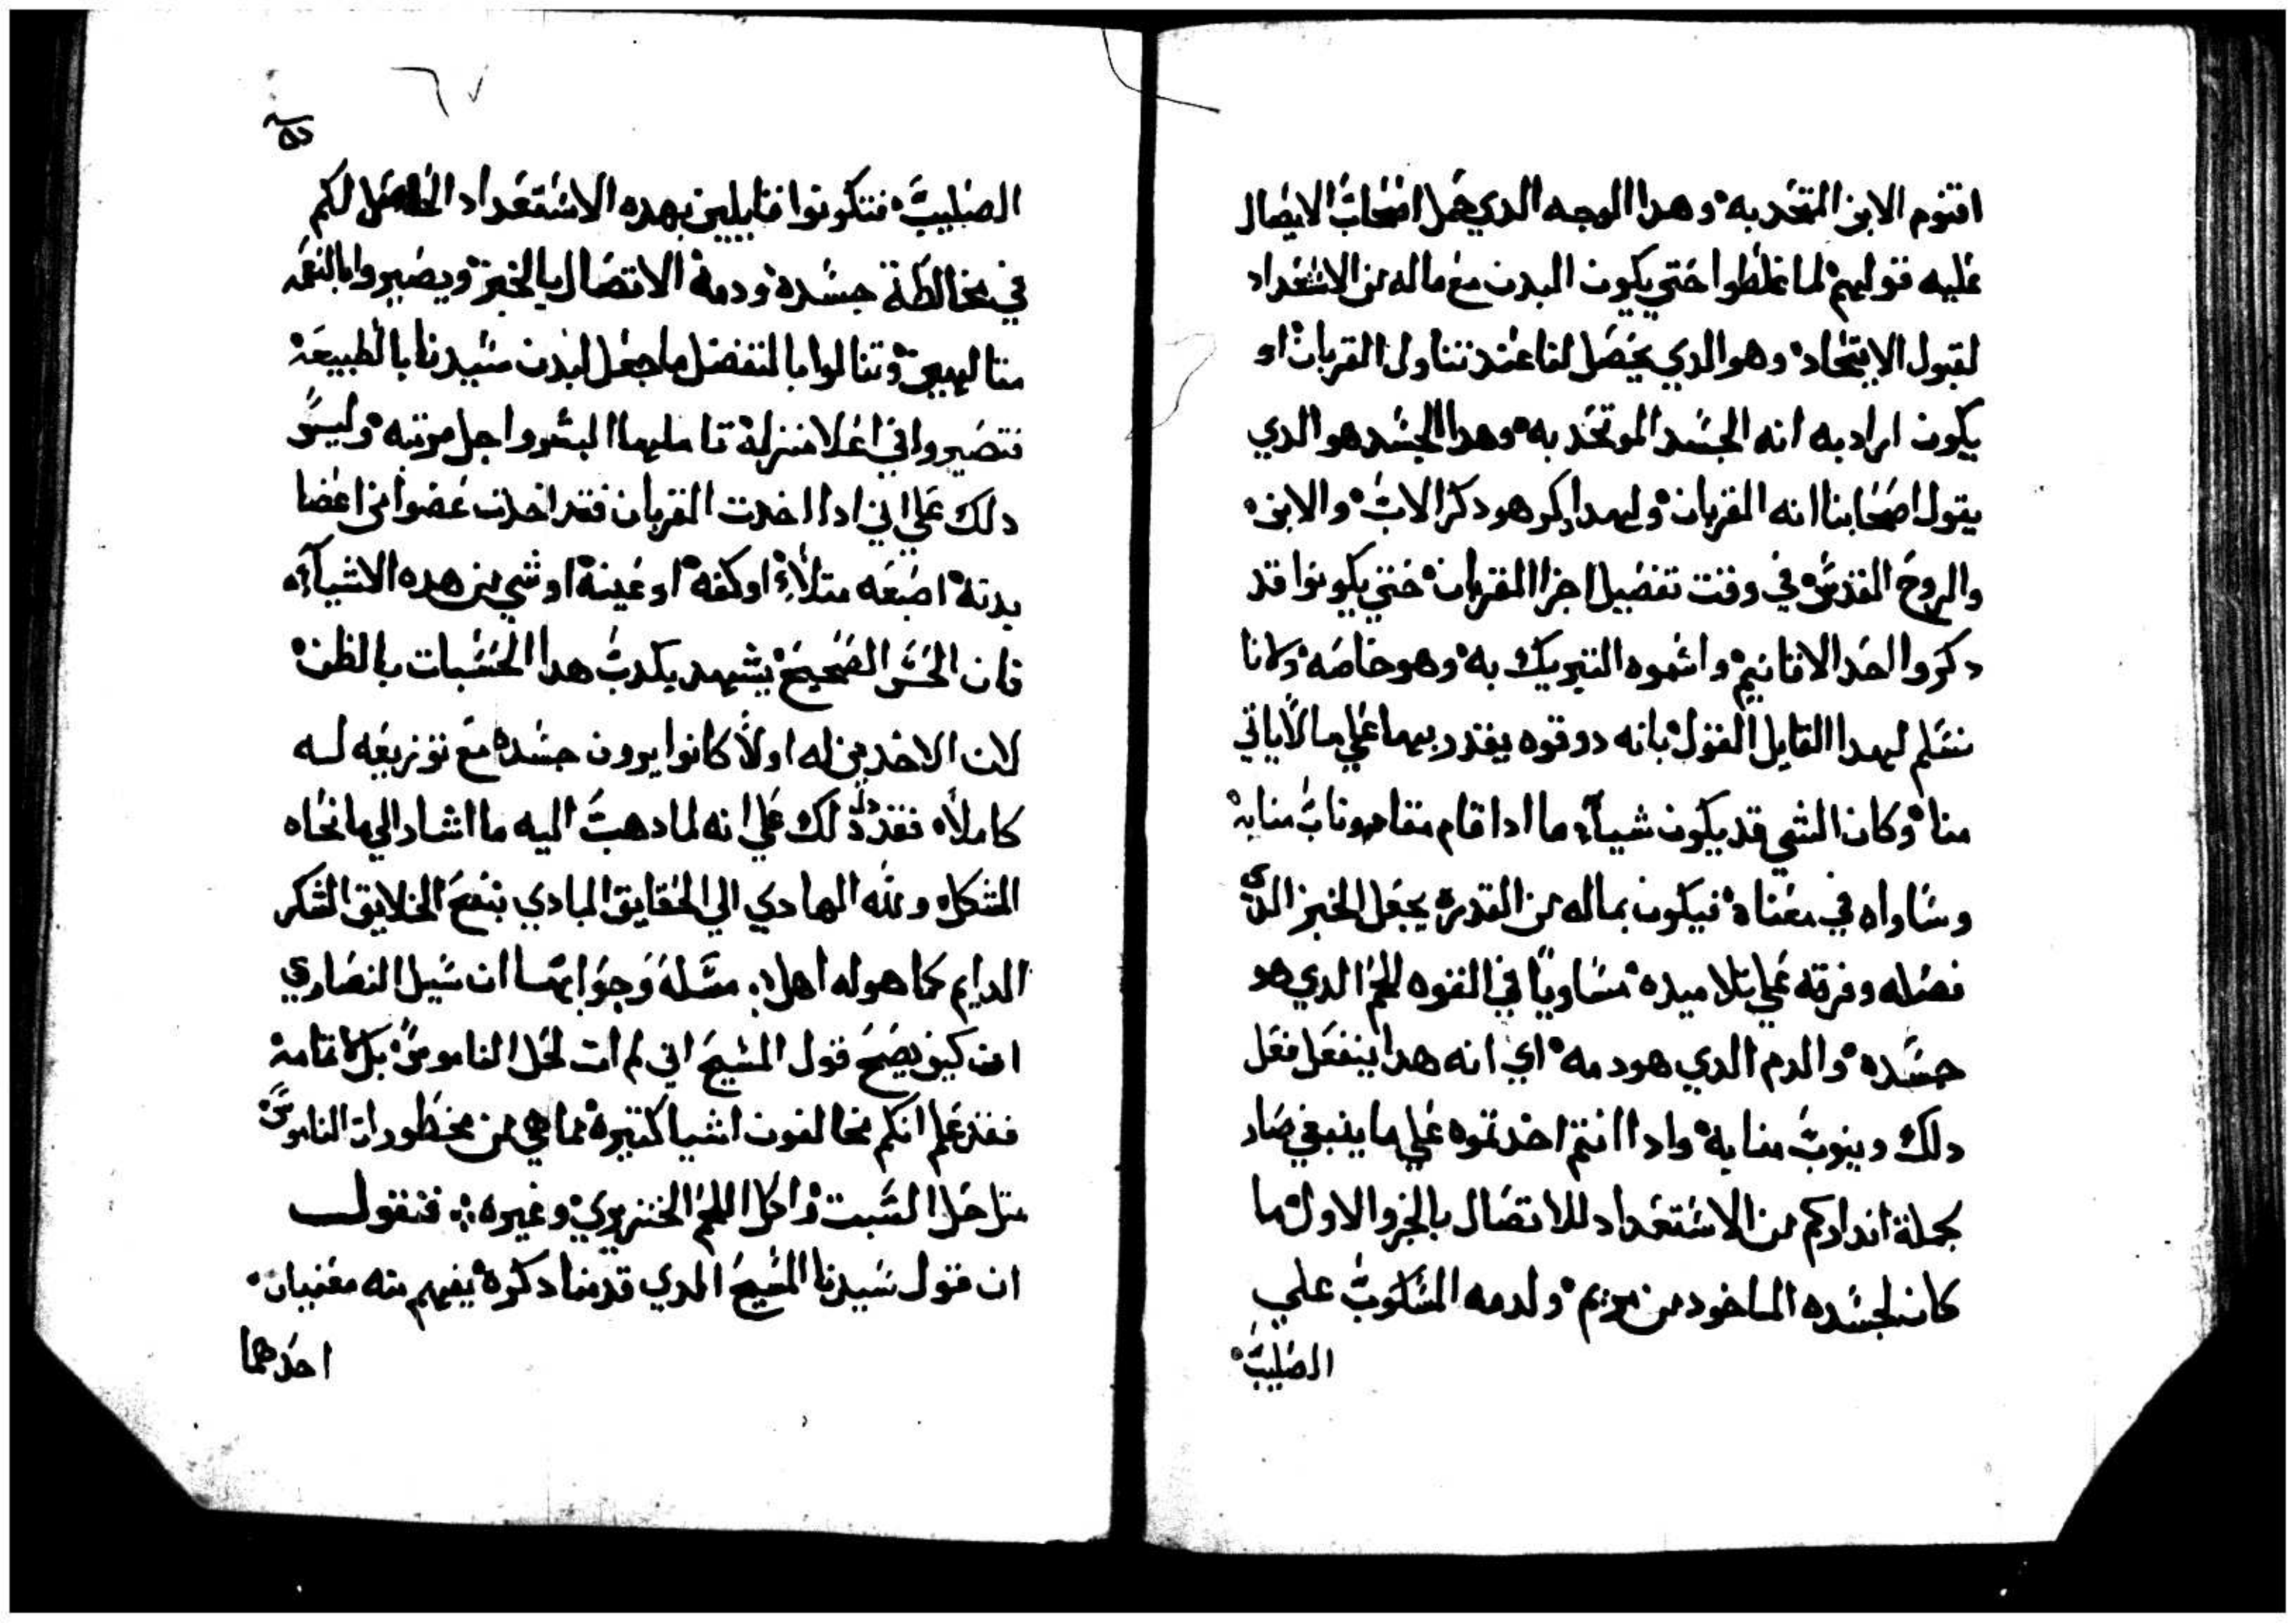 اقنوم الابن المتحد به وهدا الوجه الدي حمل اصحاب الايصال
عليه قولهم لما غلطوا حتي يكون البدن مع ماله من الاستعداد
لقبول الاتحاد وهو الدي يحصل لنا عند تناول القربان او
يكون اراد به انه الجسد الموتحد به وهدا الجسد هو الدي
يقول اصحابنا انه القربان ولهدا يكرهو دكر الاب والابن
والروح القدس في وقت تفصيل اجزا القربان حتي يكونوا قد
دكروا احد الاقانيم واتموه التبريك به وهو خاصه ولانا
نسلم لهدا القايل القول بانه دو قوه يقتدر بها علي ما لا ياتي
منا وكان الشي قد يكون شياء ما ادا قام مقامه وناب منابه
وساواه في معناه فيكون بماله من القدره يجعل الخبز الدي
فصله وفرقه علي تلاميده مساويًا في القوه للحم الدي هو
جسده والدم الدي هو دمه اي انه هدا ينفعل فعل
دلك وينوب منابه وادا انتم اخدتموه علي ما ينبغي صار
بجملة اندادكم من الاستعداد للاتصال بالجزو الاول ما
كان لجسده الماخود من مريم ولدمه المسكوب علي
الصليب
٥٥
٦٧
الصليب فتكونوا قابلين بهده الاستعداد الحاصل لكم
في مخالطة جسده ودمه الاتصال بالخبز ويصيروا بالنعمه
متالهين وتنالوا بالتفضل ما جعل لبدن سيدنا بالطبيعه
فتصيروا في اعلا منزلة تاملها البشر واجل مرتبه وليس
دلك علي اني ادا اخدت القربان فقد اخدت عضوا من اعضا
بدنه اصبعه متلاً او كفه او عينه او شي من هده الاشياء
فان الحس الصحيح يشهد بكدب هدا الحسبات بالظن
لان الاخدين له اولاً كانوا يرون جسده مع توزيعه له
كاملاً فقد دل دلك علي انه لما دهبت اليه ما اشار الي ما نحاه
المشكك ولله الهادي الي الحقايق البادي بنفع الخلايق الشكر
الدايم كما هو له اهل مسلة وجوابها ان سيل النصاري
اين كيف يصح قول المسيح اني لم ات لحل الناموس بل لاتمامه
فقد علم انكم تخالفون اشيا كتيرة مما هي من محظورات الناموس
متل حل السبت واكل اللحم الخنزيري وغيره فنقول
ان قول سيدنا المسيح الدي قدمنا دكره يفهم منه معنيان
احدهما